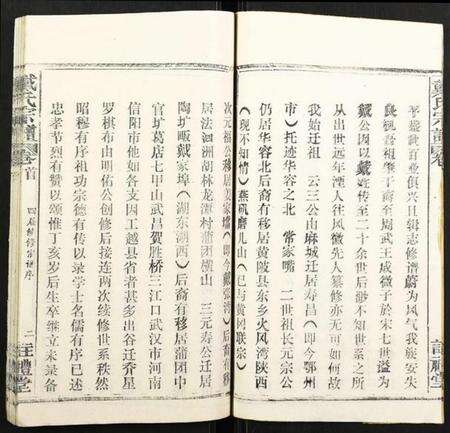 戴氏宗譜 卷
至盛世百业俱兴且辑志修谱蔚为风气我族
微子於宋七世溢为
戴公因以戴姓传至二十余世后渺不知世系之所
从出世远年湮人往风微先人纂修亦无可如何故
我始迁祖 云三公由麻城迁居寿昌（即今鄂州
市）托迹华容之北 常家嘴 二世祖长元宗公
仍居华容北后裔有移居黄陂县东乡火风湾陕西
（现不知情）燕矶磨儿山（已与黄冈联宗）
次元福公移居姜家墩（即今戴张湾）后裔有移
居法泗洲胡林龙潭村蒲团横山 三元寿公迁居
陶圹畈戴家埠（湖东湖西）后裔有移居蒲团中
官圹葛店七甲山武昌贺胜桥三江口武汉市河南
信阳市他如各支因工越县省者甚多出谷迁乔星
罗棋布由明佑公创修后接连两次续修世系秩然
昭穆有序祖功宗德有传以录学士名儒有序已述
忠孝节烈有赞以颂惟丁亥岁后生卒继立未录备
戴氏宗譜 卷首
四届续修宗谱序
二
注禮堂